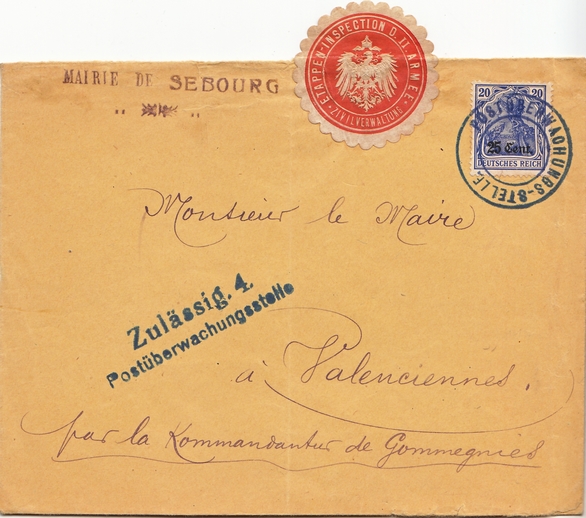 MAIRIE DE SEBOURG
ETAPPEN-INSPECTION D. II ARMEE
ZIVILVERWALTUNG
20 20
25 Cent.
DEUTSCHES REICH
POSTÜBERWACHUNGS-STELLE
Monsieur le Maire
Zulässig. 4.
Postüberwachungsstelle
à Valenciennes.
par la Kommandantur de Gommegnies